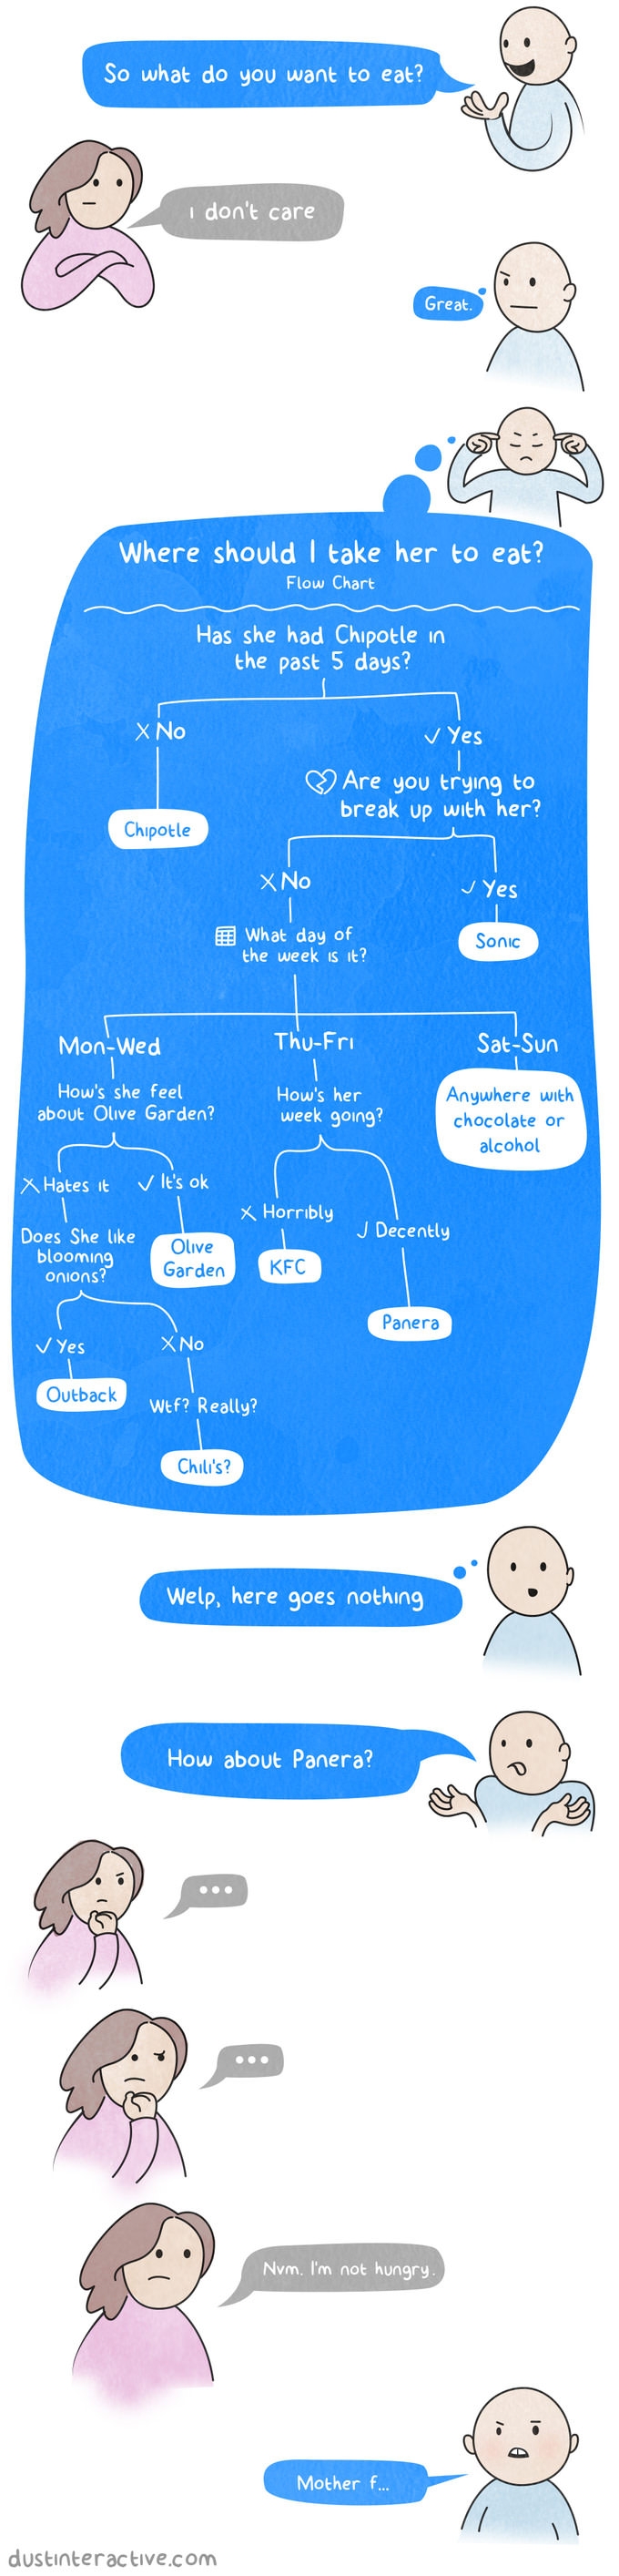 So what do you want to eat?
I don't care
Great.
Where should I take her to eat?
Flow Chart
Has she had Chipotle in
the past 5 days?
No
Yes
Chipotle
Are you trying to
break up with her?
No
Yes
Sonic
What day of
the week is it?
Mon-Wed
Thu-Fri
Sat-Sun
How's she feel
about Olive Garden?
How's her
week going?
Anywhere with
chocolate or
alcohol
Hates it
It's ok
Horribly
Decently
Does She like
blooming
onions?
Olive
Garden
KFC
Panera
Yes
No
Outback
Wtf? Really?
Chili's?
Welp, here goes nothing
How about Panera?
...
...
Nvm. I'm not hungry.
Mother f...
dustinteractive.com